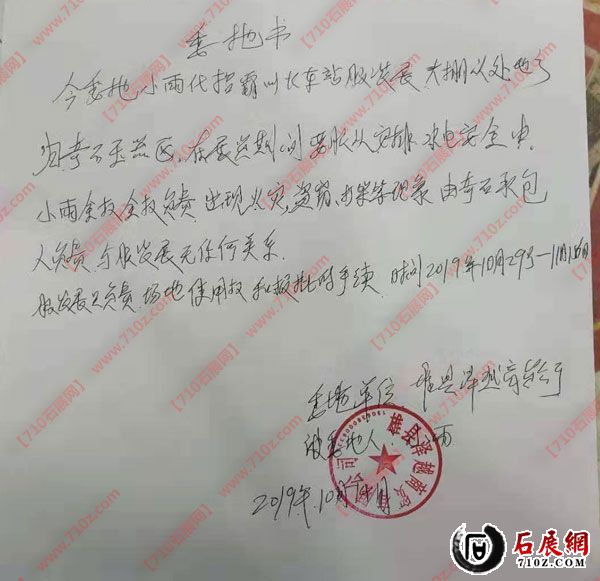 委托书
今委托小雨代招霸州长车站服装展大棚以外地方
为奇石玉器区,在展览期间要服从安排水电安全由
小雨全权全权负责.出现火灾,盗窃,打架等现象由奇石承包
人负责与服装展无任何关系.
服装展只负责场地使用权和报批的手续.时间2019年10月29号—11月
委托单位 雄县泽越商贸公司
被委托人 雨
2019年10月 月
雄县泽越商贸 公司
石展網
710z.com
【710石展网】
www.710z.com